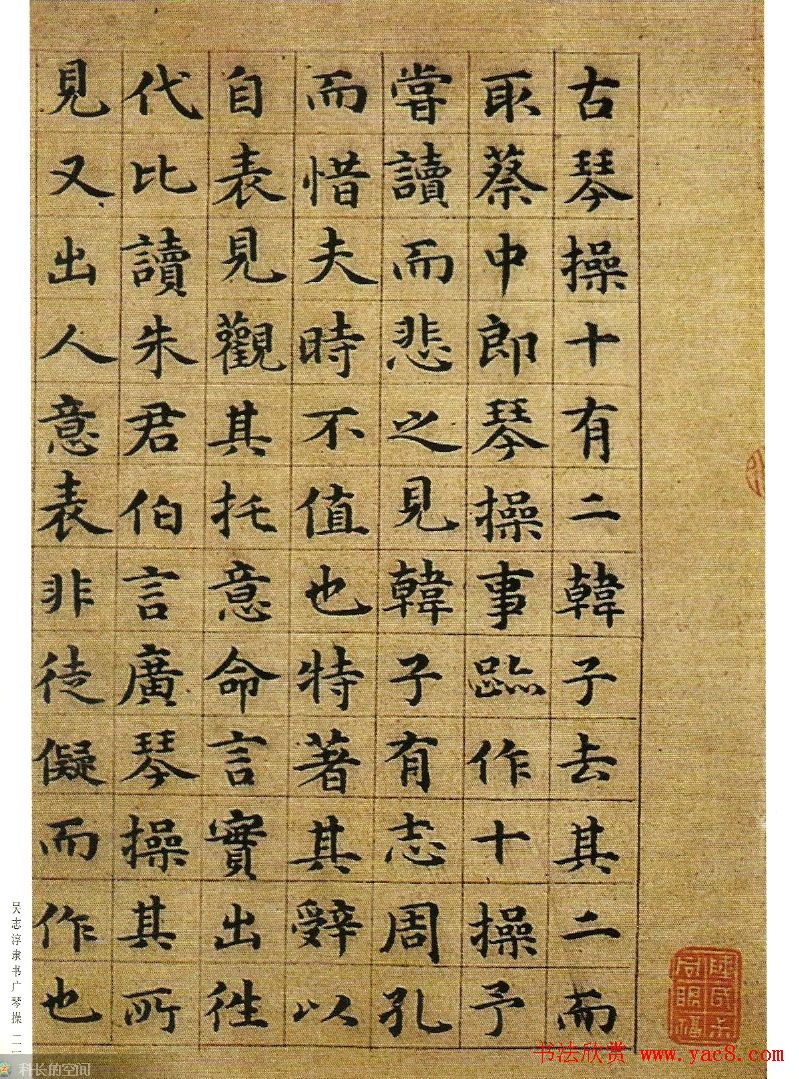 古琴操十有二韓子去其二而
取蔡中郎琴操事跡作十操予
嘗讀而悲之見韓子有志周孔
而惜夫時不值也特著其辭以
自表見觀其托意命言實出往
代比讀朱君伯言廣琴操其所
見又出人意表非徒儗而作也
吴志淳隶书广琴操
科长的空间
书法欣赏 www.yac8.com